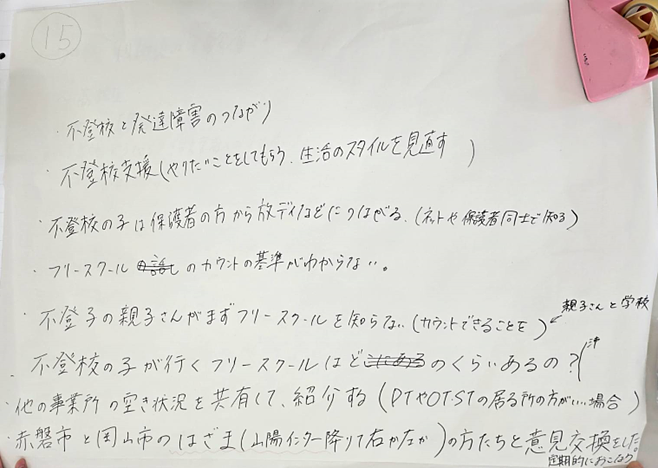 15
・不登校と発達障害のつながり
・不登校支援(やりたいことをしてもらう、生活のスタイルを見直す)
・不登校の子は保護者の方から放デイなどにつながる。(ネットや保護者同士で知る)
・フリースクール の話し のカウントの基準がわからない。
・不登子の親子さんがまずフリースクールを知らない(カウントできることを)
親子さんと学校
・不登校の子が行くフリースクールはど のくらいあるの?
・他の事業所の空き状況を共有して、紹介する(PTやOT・STの居る所の方がいい場合)
・赤磐市と岡山市のはざま(山陽インター降りて右か左か)の方たちと意見交換をした。
定期的におこなう